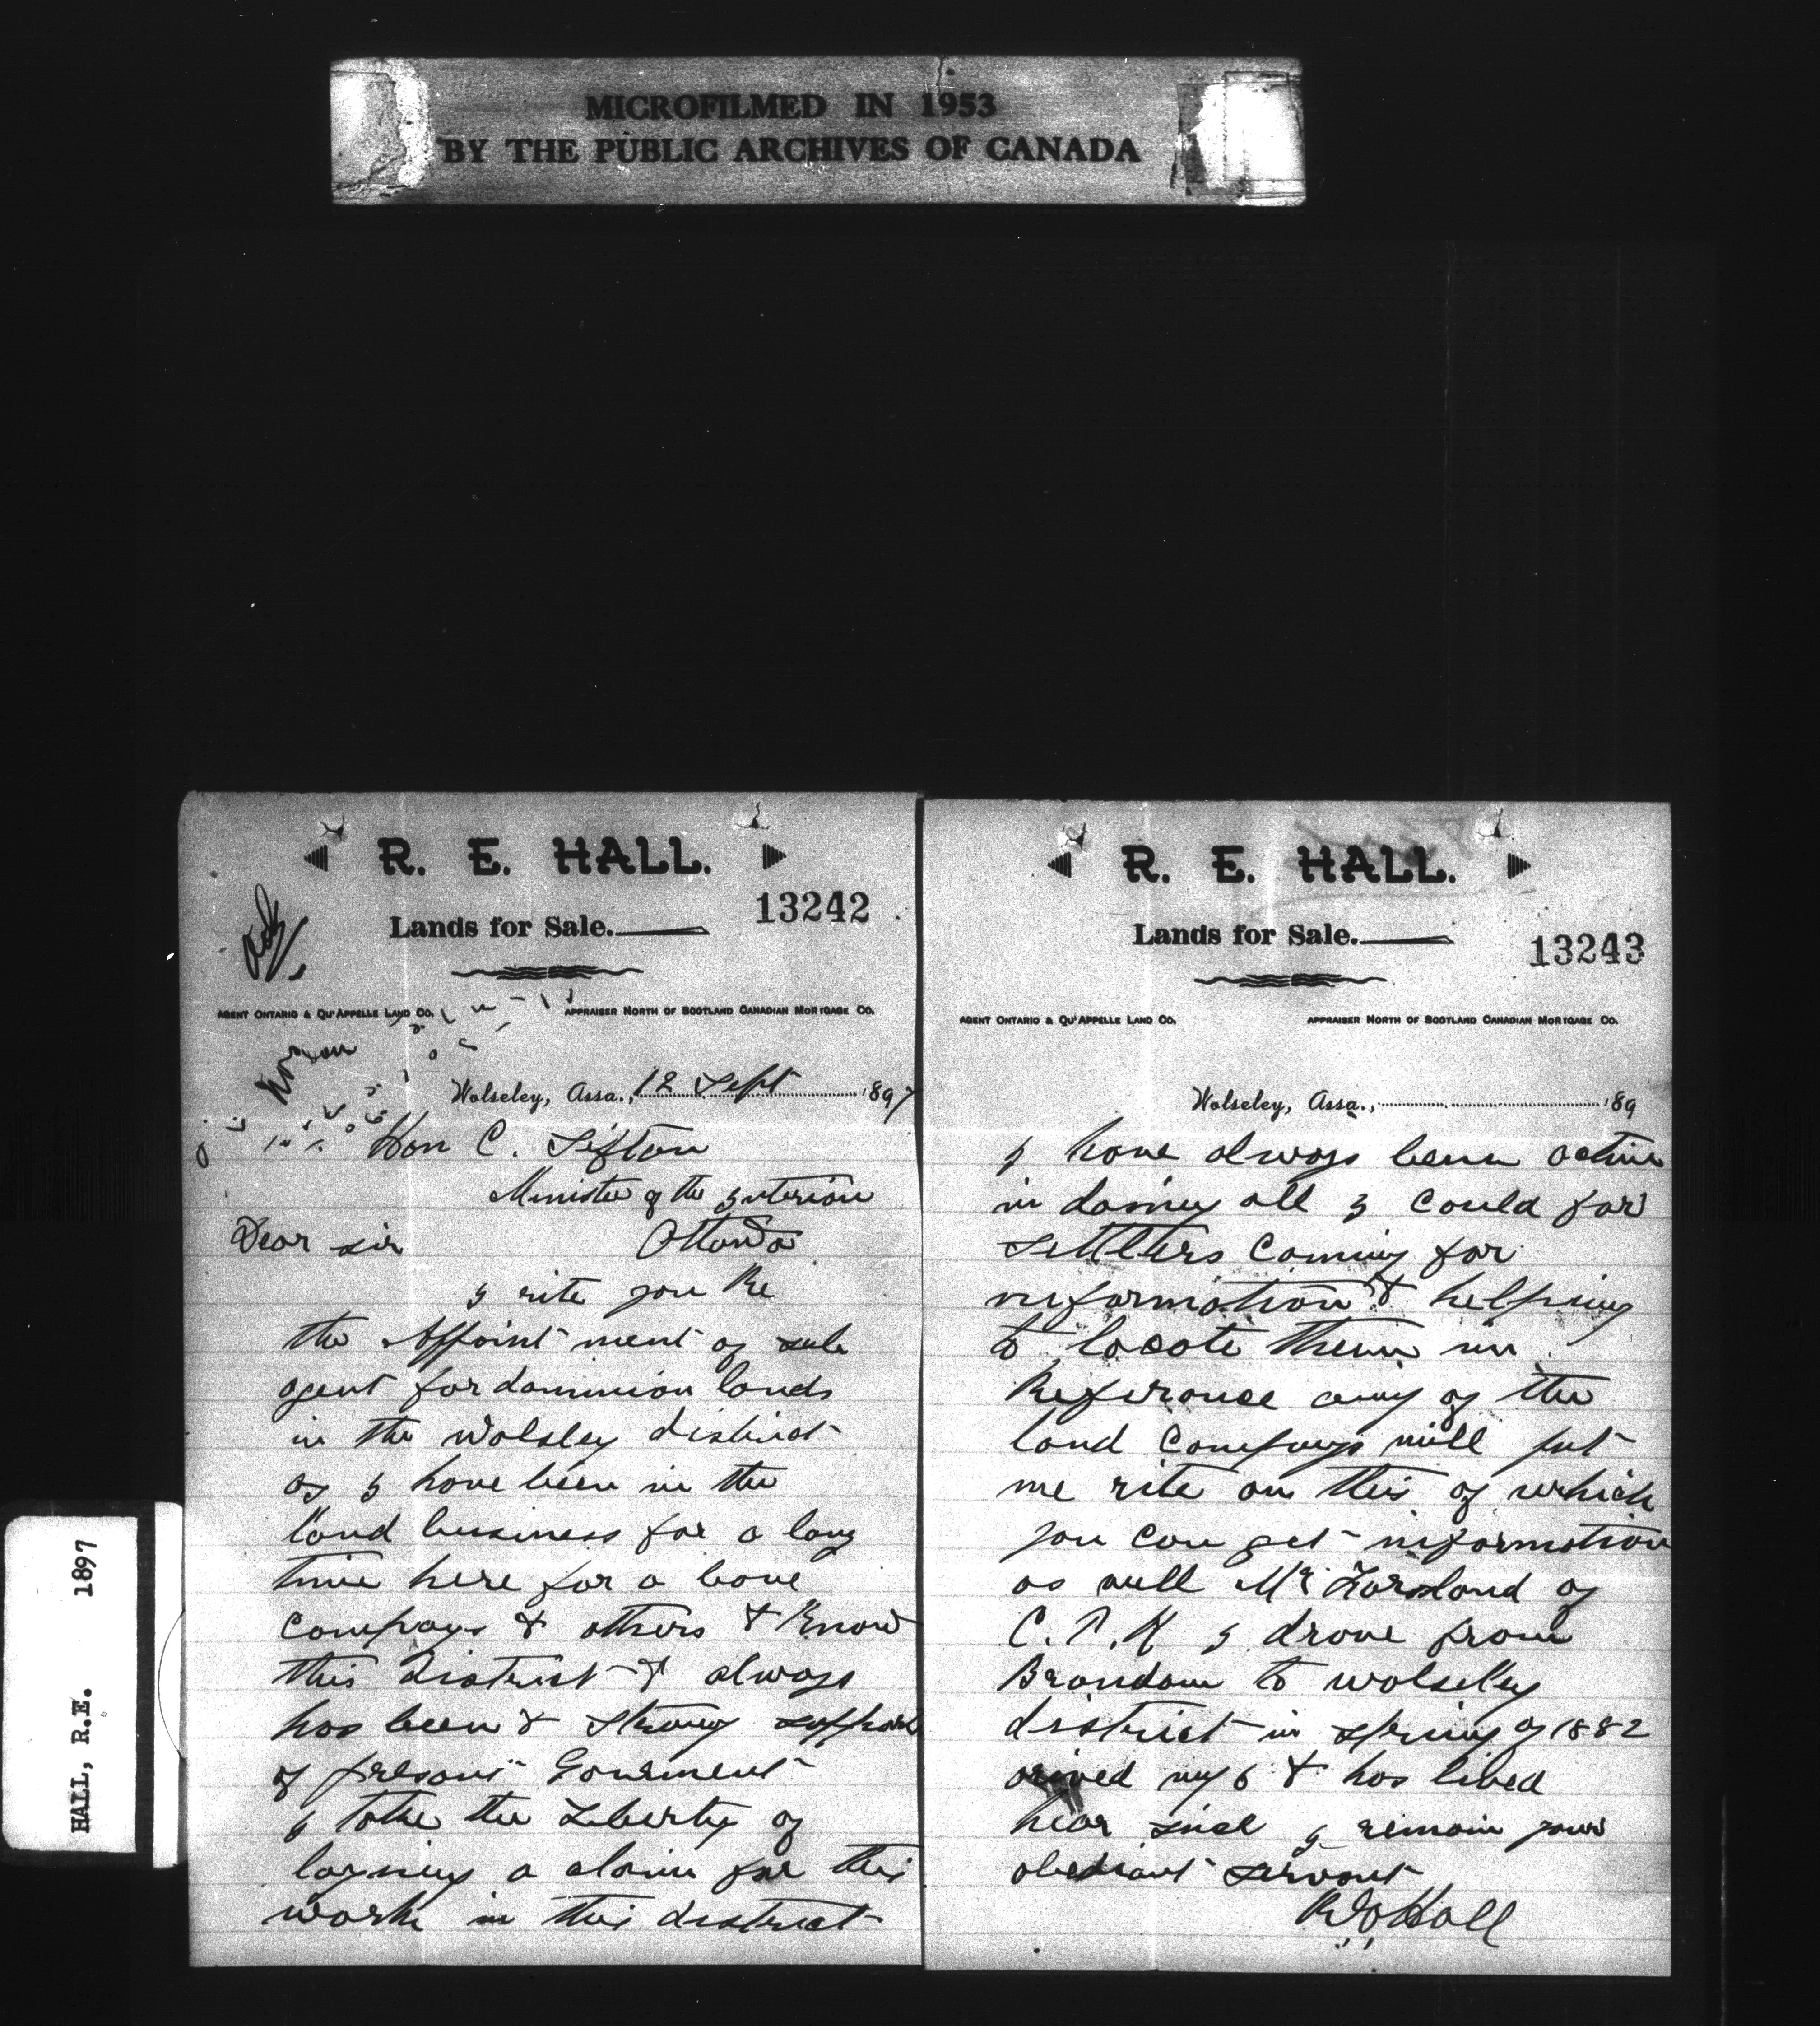 MICROFILMED IN 1953
BY THE PUBLIC ARCHIVES OF CANADA
HALL, R.E. 1897
R. E. HALL.
13242
Lands for Sale.
AGENT ONTARIO & QU'APPELLE LAND CO. APPRAISER NORTH OF SCOTLAND CANADIAN MORTGAGE CO.
Wolseley, Assa., 12 Sept 1897
Hon C. Sifton
Minister of the Interior
Dear sir Ottawa
I rite you Re
the Appointment of sub
agent for dominion lands
in the Wolsley district
as I have been in the
land business for a long
time here for a love
companys & others & Know
this district & always
has been & strong support
of presant Government
I take the Liberty of
laysing a claim for this
work in this district
R. E. HALL.
Lands for Sale.
13243
AGENT ONTARIO & QU'APPELLE LAND CO. APPRAISER NORTH OF SCOTLAND CANADIAN MORTGAGE CO.
Wolseley, Assa., 189
I have always been active
in doing all I could for
settlers coming for
information & helping
to locate them in
Referance any of the
land companys will put
me rite on this of which
you can get information
as well Mr of
C.P.R I drove from
Brandon to wolseley
district in spring of 1882
arived my 6 & has lived
hear since I remain your
obediant servant
R E Hall